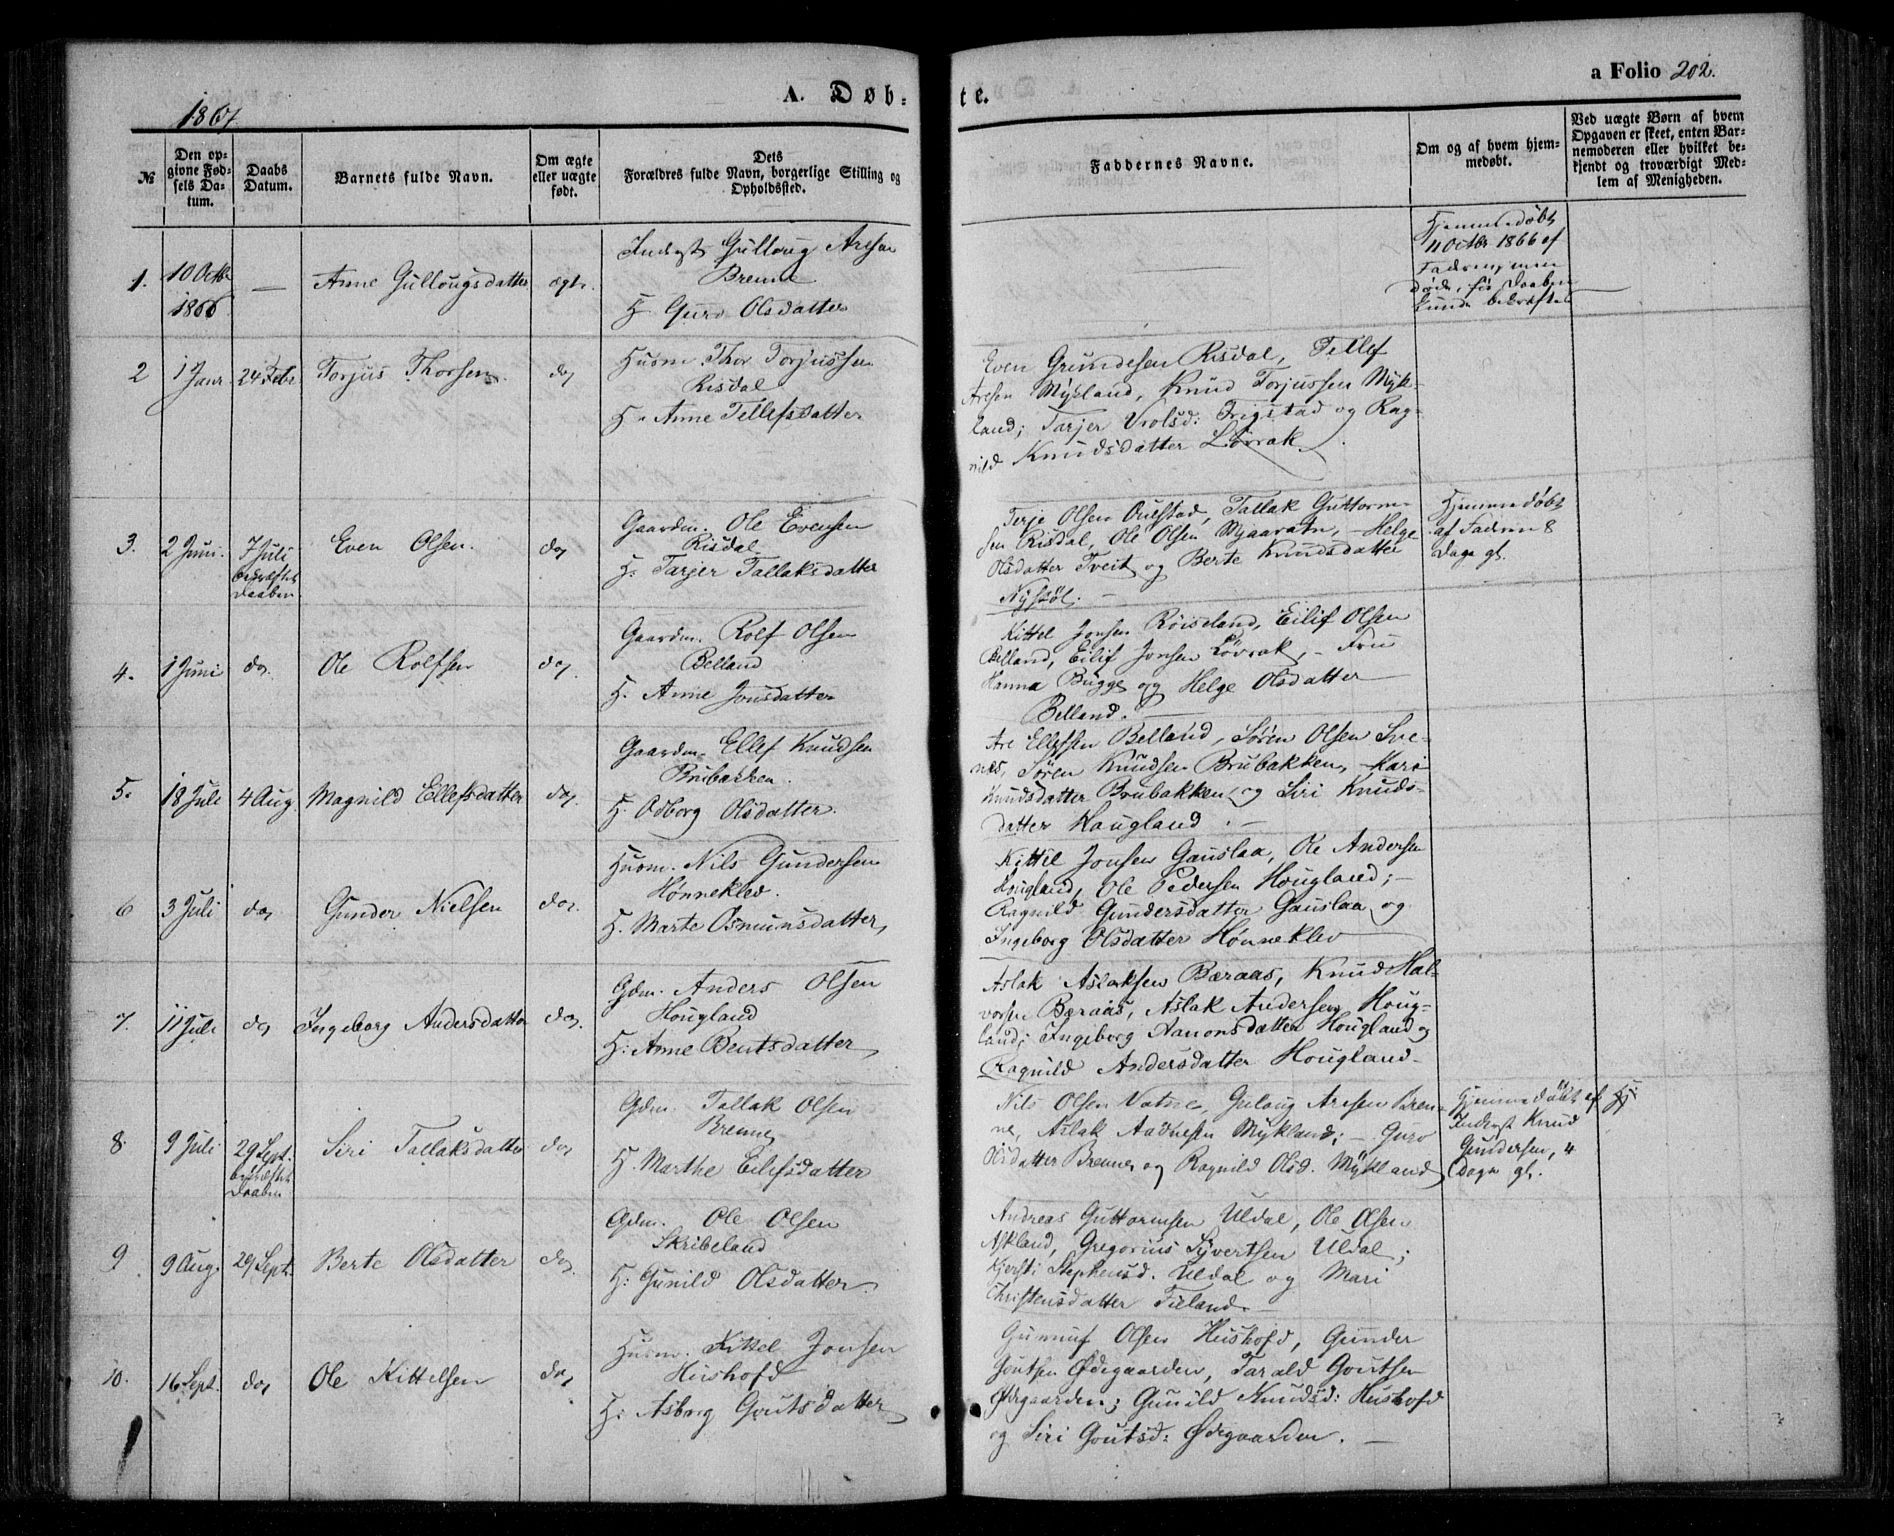 1867.
A. Døb-
te.
a Folio 202.
№
Den op-
givne Fød-
sels Da-
tum.
Daabs
Datum.
Barnets fulde Navn.
Om ægte
eller uægte
født.
Dets
Forældres fulde Navn, borgerlige Stilling og
Opholdssted.
Faddernes Navne.
Om og af hvem hjem-
medøbt.
Ved uægte Børn af hvem
Opgaven er skeet, enten Bar-
nemoderen eller hvilket be-
kjendt og troværdigt Med-
lem af Menigheden.
1.
10 Octbr
1866
—
Anne Gullougsdatter
ægte.
Inderst Gulloug Aresen
Brenne
H. Guro Olsdatter
Hjemmedøbt
11 Octbr 1866 af
Faderen, men
døde, før Daaben
kunde bekræftes
2
1 Janr
24 Febr
Torjus Thorsen.
do
Husm. Thor Torjussen
Risdal
H. Anne Tellefsdatter
Even Grundesen Risdal, Tellef
Aresen Mykland, Knud Torjussen Myk-
land; Tarjer Vrolsd: Frigstad og Rag-
nild Knudsdatter Løvrak.
3.
2 Juni.
7 Juli
bekræftet
Daaben
Even Olsen.
do
Gaardm. Ole Evensen
Risdal
H. Tarjer Tallaksdatter
Terje Olsen Ouestad, Tallak Guttorm-
sen Risdal, Ole Olsen Mjaavatn, - Helge
Olsdatter Tveit og Berte Knudsdatter
Nystøl. -
Hjemmedøbt
af Faderen 8
Dage gl.
4.
1 Juni
do.
Ole Rolfsen
do.
Gaardm. Rolf Olsen
Belland
H. Anne Jonsdatter
Kittel Jonsen Røiseland, Eilif Olsen
Belland, Eilif Jonsen Løvrak, - Fru
Hanna Bugge og Helge Olsdatter
Belland. -
5.
18 Juli
4 Aug.
Magnild Ellefsdatter
do.
Gaardm. Ellef Knudsen
Brubakken.
H. Odborg Olsdatter.
Are Ellefsen Belland, Søren Olsen Sve-
nes, Søren Knudsen Brubakken, Kari
Knudsdatter Brubakken og Siri Knuds-
datter Hougland. -
6
3 Juli
do,
Gunder Nielsen
do.
Husm. Nils Gundersen
Hønneklev.
H. Marte Osmunsdatter,
Kittel Jonsen Gauslaa, Ole Andersen
Hougland, Ole Pedersen Hougland; -
Ragnild Gundersdatter Gauslaa og
Ingeborg Olsdatter Hønneklev
7.
11 Juli
do
Ingeborg Andersdatter
do.
Gdm. Anders Olsen
Hougland
H: Anne Bentsdatter
Aslak Aslaksen Bæraas, Knud Hal-
vorsen Bæraas, Aslak Andersen Houg-
land; Ingeborg Aanonsdatter Hougland og
Ragnild Andersdatter Hougland -
8.
9 Juli
29 Sept.
bekræftet
Daaben
Siri Tallaksdatter
do
Gdm. Tallak Olsen
Brenne
H. Marthe Eilefsdatter
Nils Olsen Vatne, Guloug Aresen Bren-
ne, Aslak Aadnesen Mykland; - Guro
Olsdatter Brenne og Ragnild Olsd. Mykland
Hjemmedøbt af
Inderst Knud
Gundersen, 4
Dage gl.
9
9 Aug.
29 Sept.
Berte Olsdatter
do.
Gdm. Ole Olsen
Skribeland
H: Gunild Olsdatter.
Andreas Guttormsen Uldal, Ole Olsen
Askland, Gregorius Syvertsen Uldal;
Kjersti Stephensd. Uldal og Mari
Christensdatter Fieland. -
10.
16 Sept.
do
Ole Kittelsen
do
Husm. Kittel Jonsen
Hushofd
H: Asborg Goutsdatter
Gunnuf Olsen Hushofd, Gunder
Goutsen Ødegaarden, Tarald Goutsen
Ødegaarden; Gunild Knudsd: Hushofd
og Siri Goutsd: Ødegaarden. -